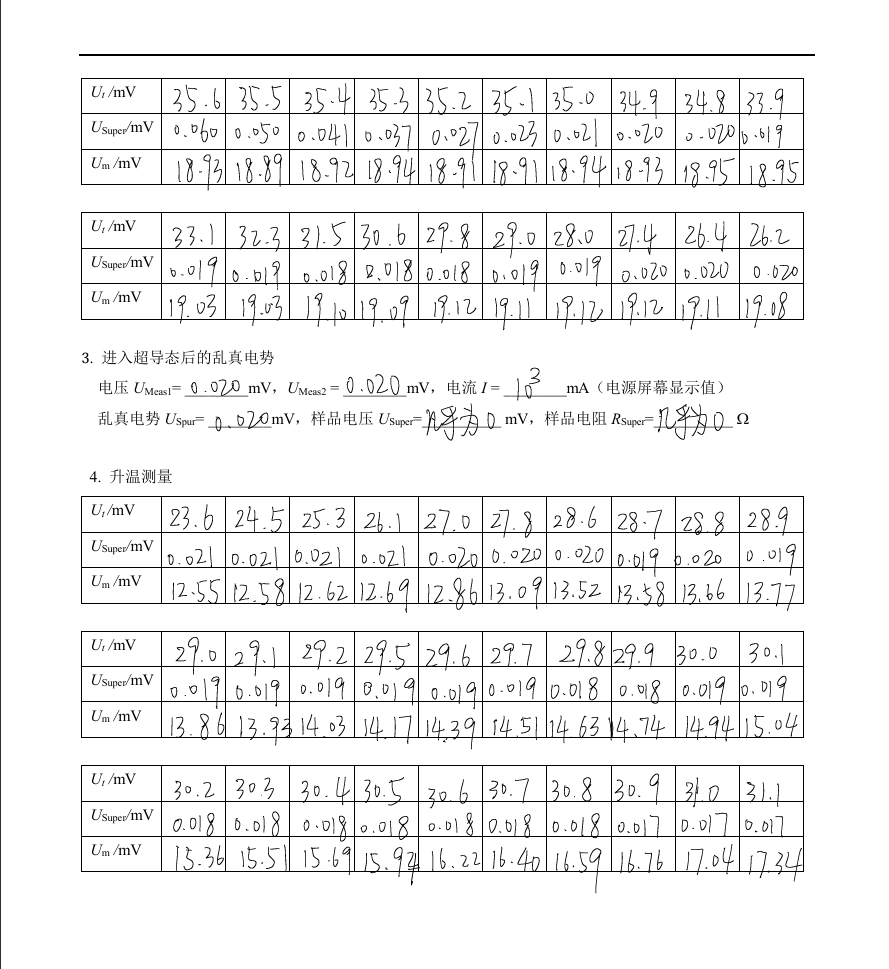 Ut /mV 35.6 35.5 35.4 35.3 35.2 35.1 35.0 34.9 34.8 33.9
USuper/mV 0.060 0.050 0.041 0.037 0.027 0.023 0.021 0.020 0.020 0.019
Um /mV 18.93 18.89 18.92 18.94 18.91 18.91 18.94 18.93 18.95 18.95
Ut /mV 33.1 32.3 31.5 30.6 29.8 29.0 28.0 27.4 26.4 26.2
USuper/mV 0.019 0.019 0.018 0.018 0.018 0.019 0.019 0.020 0.020 0.020
Um /mV 19.03 19.03 19.10 19.09 19.12 19.11 19.12 19.12 19.11 19.08
3. 进入超导态后的乱真电势
电压 UMeas1= 0.020 mV，UMeas2 = 0.020 mV，电流 I = 10³ mA（电源屏幕显示值）
乱真电势 USpur= 0.020 mV，样品电压 USuper= 几乎为0 mV，样品电阻 RSuper= 几乎为0 Ω
4. 升温测量
Ut /mV 23.6 24.5 25.3 26.1 27.0 27.8 28.6 28.7 28.8 28.9
USuper/mV 0.021 0.021 0.021 0.021 0.020 0.020 0.020 0.019 0.020 0.019
Um /mV 12.55 12.58 12.62 12.69 12.86 13.09 13.52 13.58 13.66 13.77
Ut /mV 29.0 29.1 29.2 29.5 29.6 29.7 29.8 29.9 30.0 30.1
USuper/mV 0.019 0.019 0.019 0.019 0.019 0.019 0.018 0.018 0.019 0.019
Um /mV 13.86 13.93 14.03 14.17 14.39 14.51 14.63 14.74 14.94 15.04
Ut /mV 30.2 30.3 30.4 30.5 30.6 30.7 30.8 30.9 31.0 31.1
USuper/mV 0.018 0.018 0.018 0.018 0.018 0.018 0.018 0.017 0.017 0.017
Um /mV 15.36 15.51 15.69 15.94 16.22 16.40 16.59 16.76 17.04 17.34